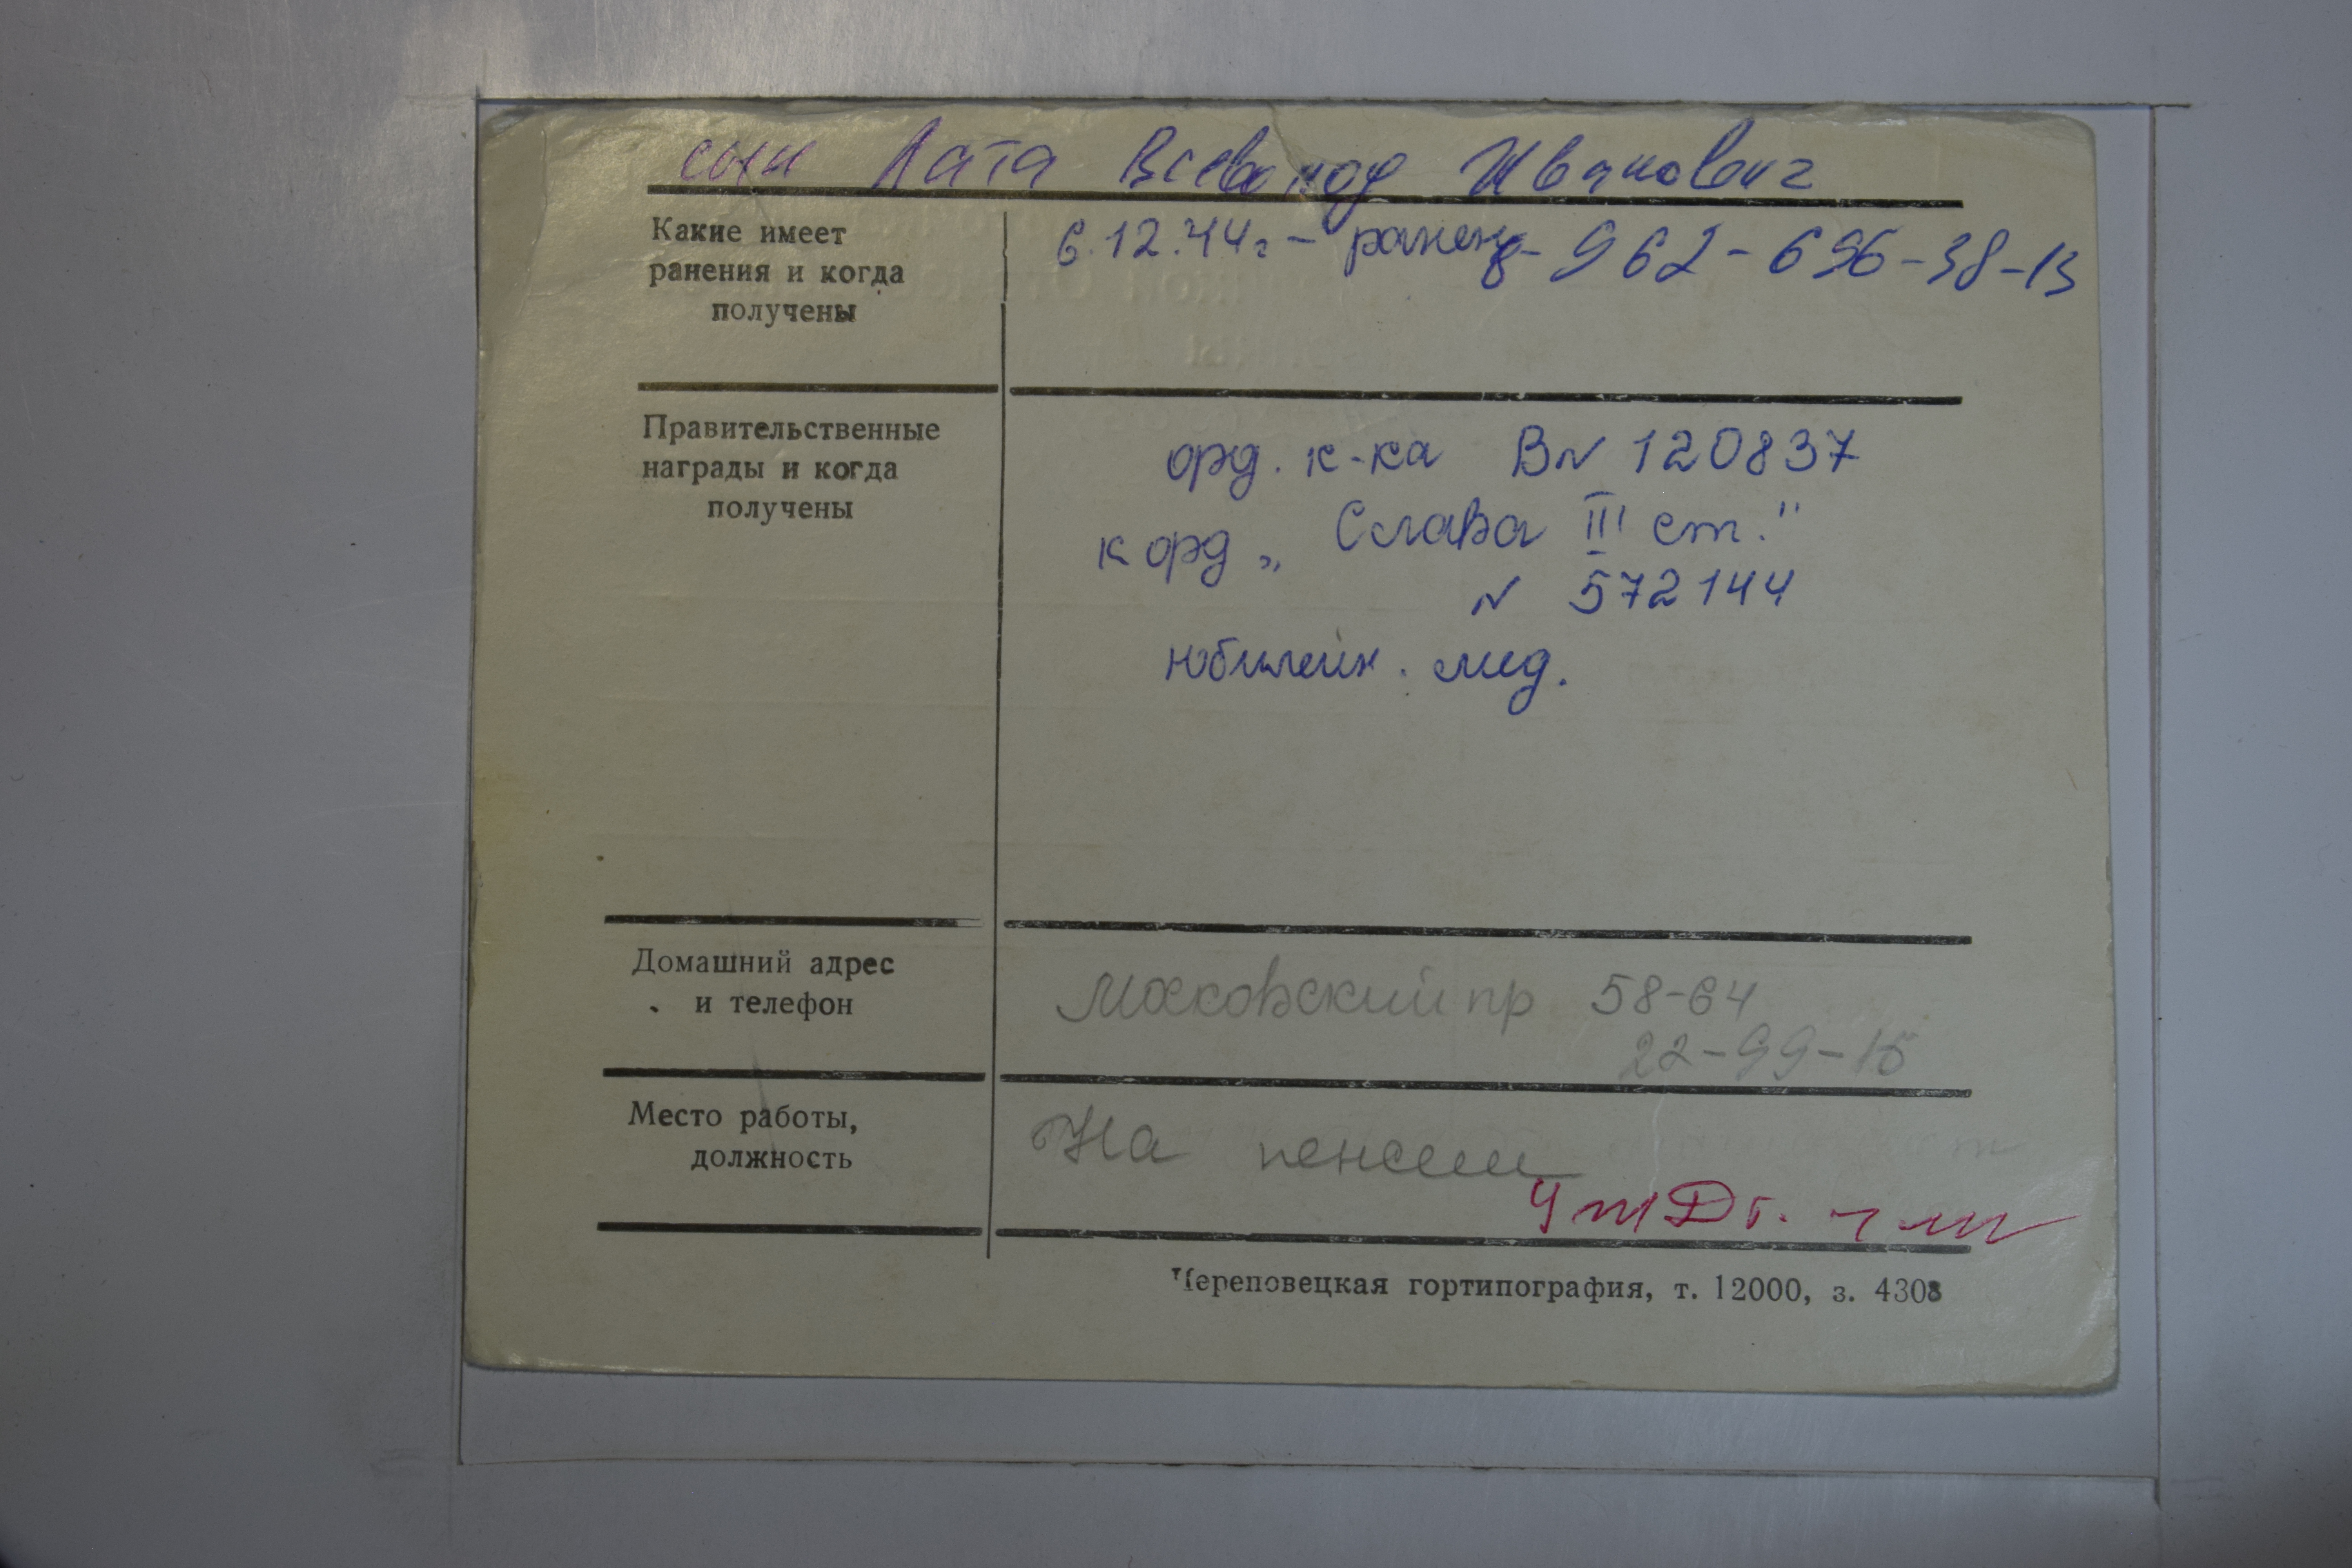 сын Лата Всеволод Иванович
Какие имеет
ранения и когда
получены
6.12.44г - ранен
8-962-696-38-13
Правительственные
награды и когда
получены
орд. к-ка В№ 120837
к орд „Слава III ст."
№ 572144
юбилейн. мед.
Домашний адрес
и телефон
Московский пр 58-64
22-99-15
Место работы,
должность
На пенсии
Череповецкая гортипография, т. 12000, з. 4308